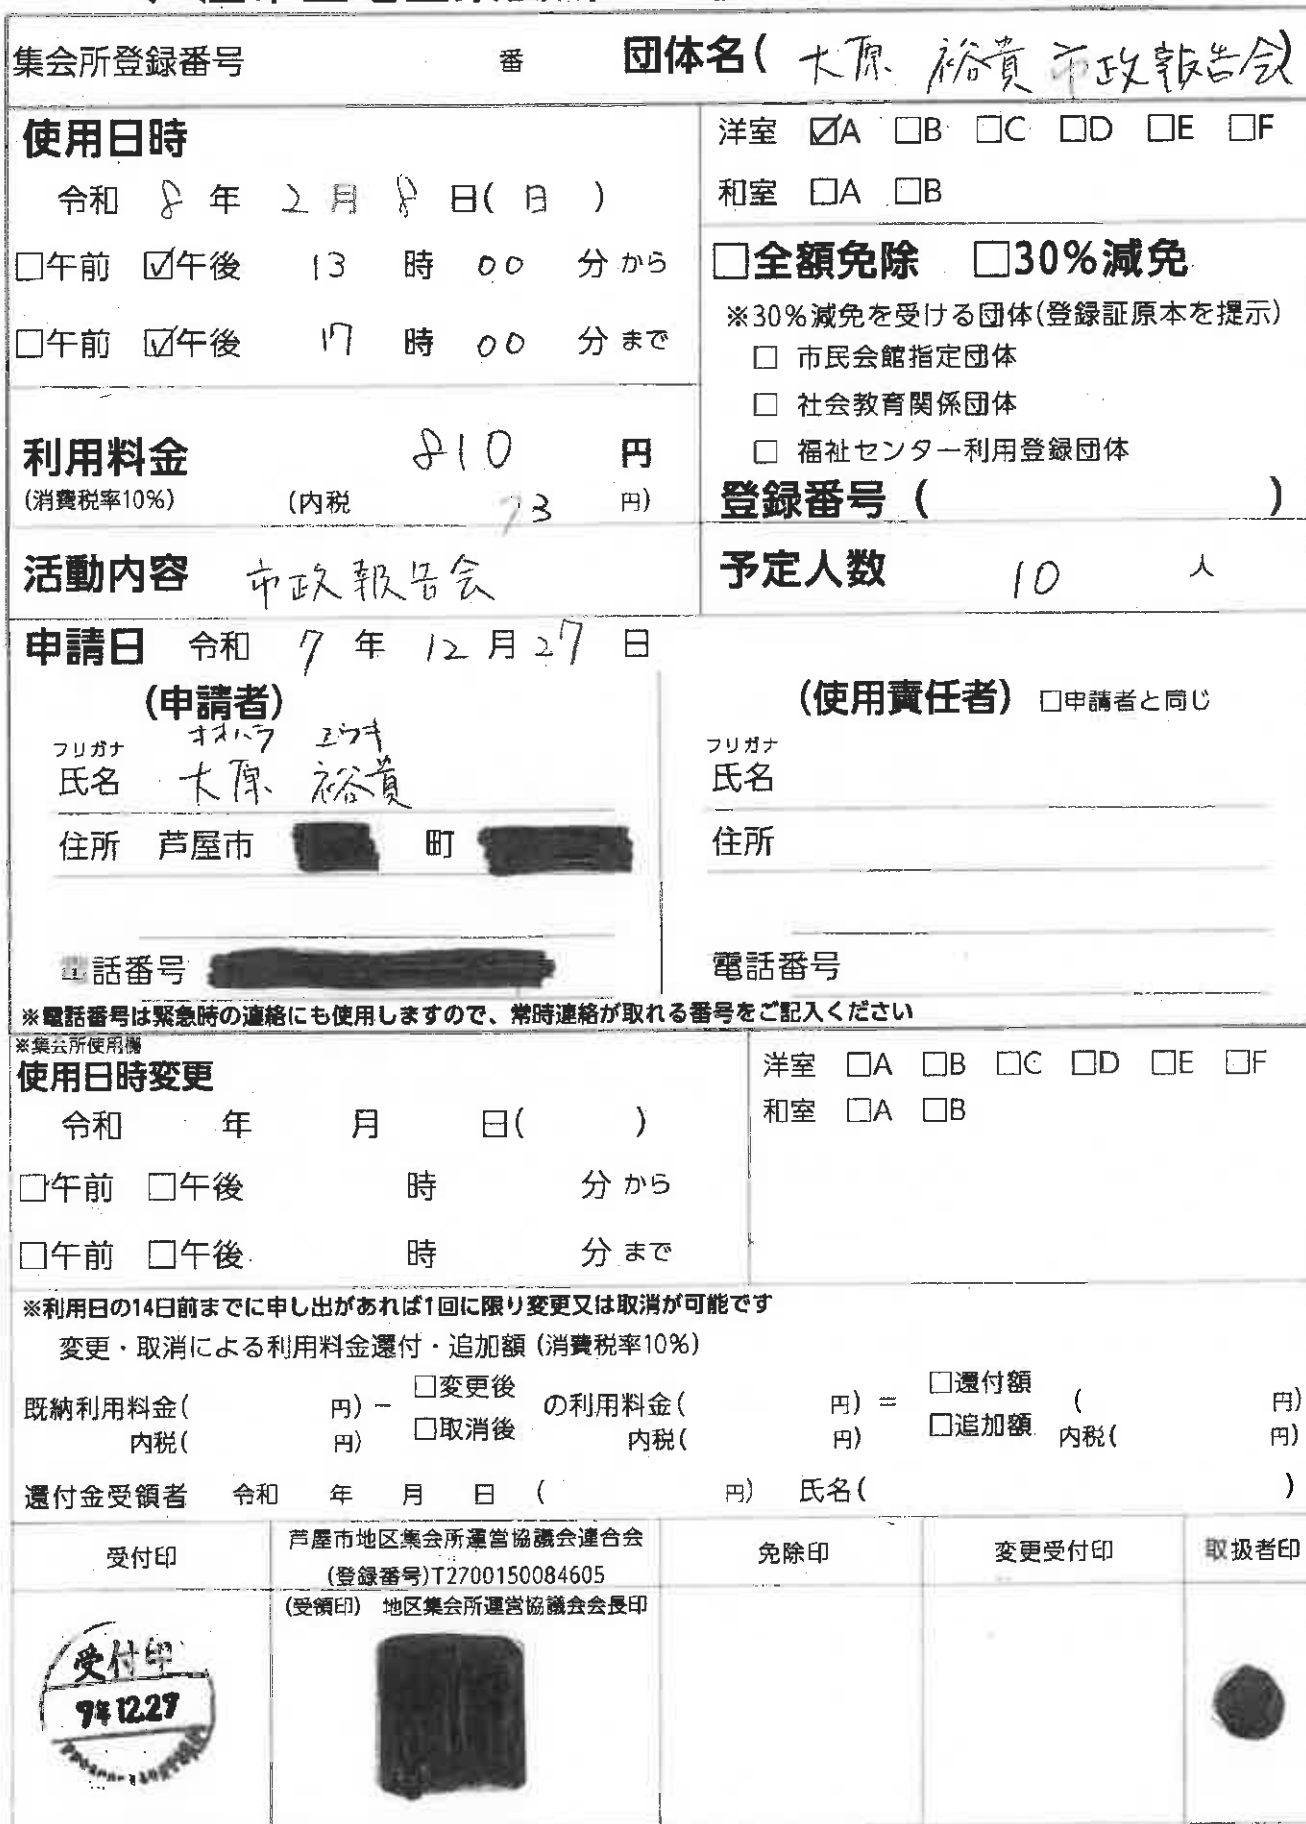 集会所登録番号 番 団体名( 大原 裕貴 市政報告会)
使用日時
令和 8 年 2 月 8 日( 日 )
□午前 ☑午後 13 時 00 分 から
□午前 ☑午後 17 時 00 分 まで
洋室 ☑A □B □C □D □E □F
和室 □A □B
□全額免除 □30%減免
※30%減免を受ける団体(登録証原本を提示)
□ 市民会館指定団体
□ 社会教育関係団体
□ 福祉センター利用登録団体
登録番号 ( )
利用料金 810 円
(消費税率10%) (内税 73 円)
活動内容 市政報告会
予定人数 10 人
申請日 令和 7 年 12 月 27 日
(申請者)
フリガナ オオハラ ユウキ
氏名 大原 裕貴
住所 芦屋市 町
電話番号
(使用責任者) □申請者と同じ
フリガナ
氏名
住所
電話番号
※電話番号は緊急時の連絡にも使用しますので、常時連絡が取れる番号をご記入ください
※集会所使用欄
使用日時変更
令和 年 月 日( )
□午前 □午後 時 分 から
□午前 □午後 時 分 まで
洋室 □A □B □C □D □E □F
和室 □A □B
※利用日の14日前までに申し出があれば1回に限り変更又は取消が可能です
変更・取消による利用料金還付・追加額 (消費税率10%)
既納利用料金( 円) − □変更後 □取消後 の利用料金( 円) = □還付額 □追加額 ( 円)
内税( 円) 内税( 円) 内税( 円)
還付金受領者 令和 年 月 日 ( 円) 氏名( )
受付印
芦屋市地区集会所運営協議会連合会
(登録番号)T2700150084605
免除印
変更受付印
取扱者印
(受領印) 地区集会所運営協議会会長印
受付印
7年12.27